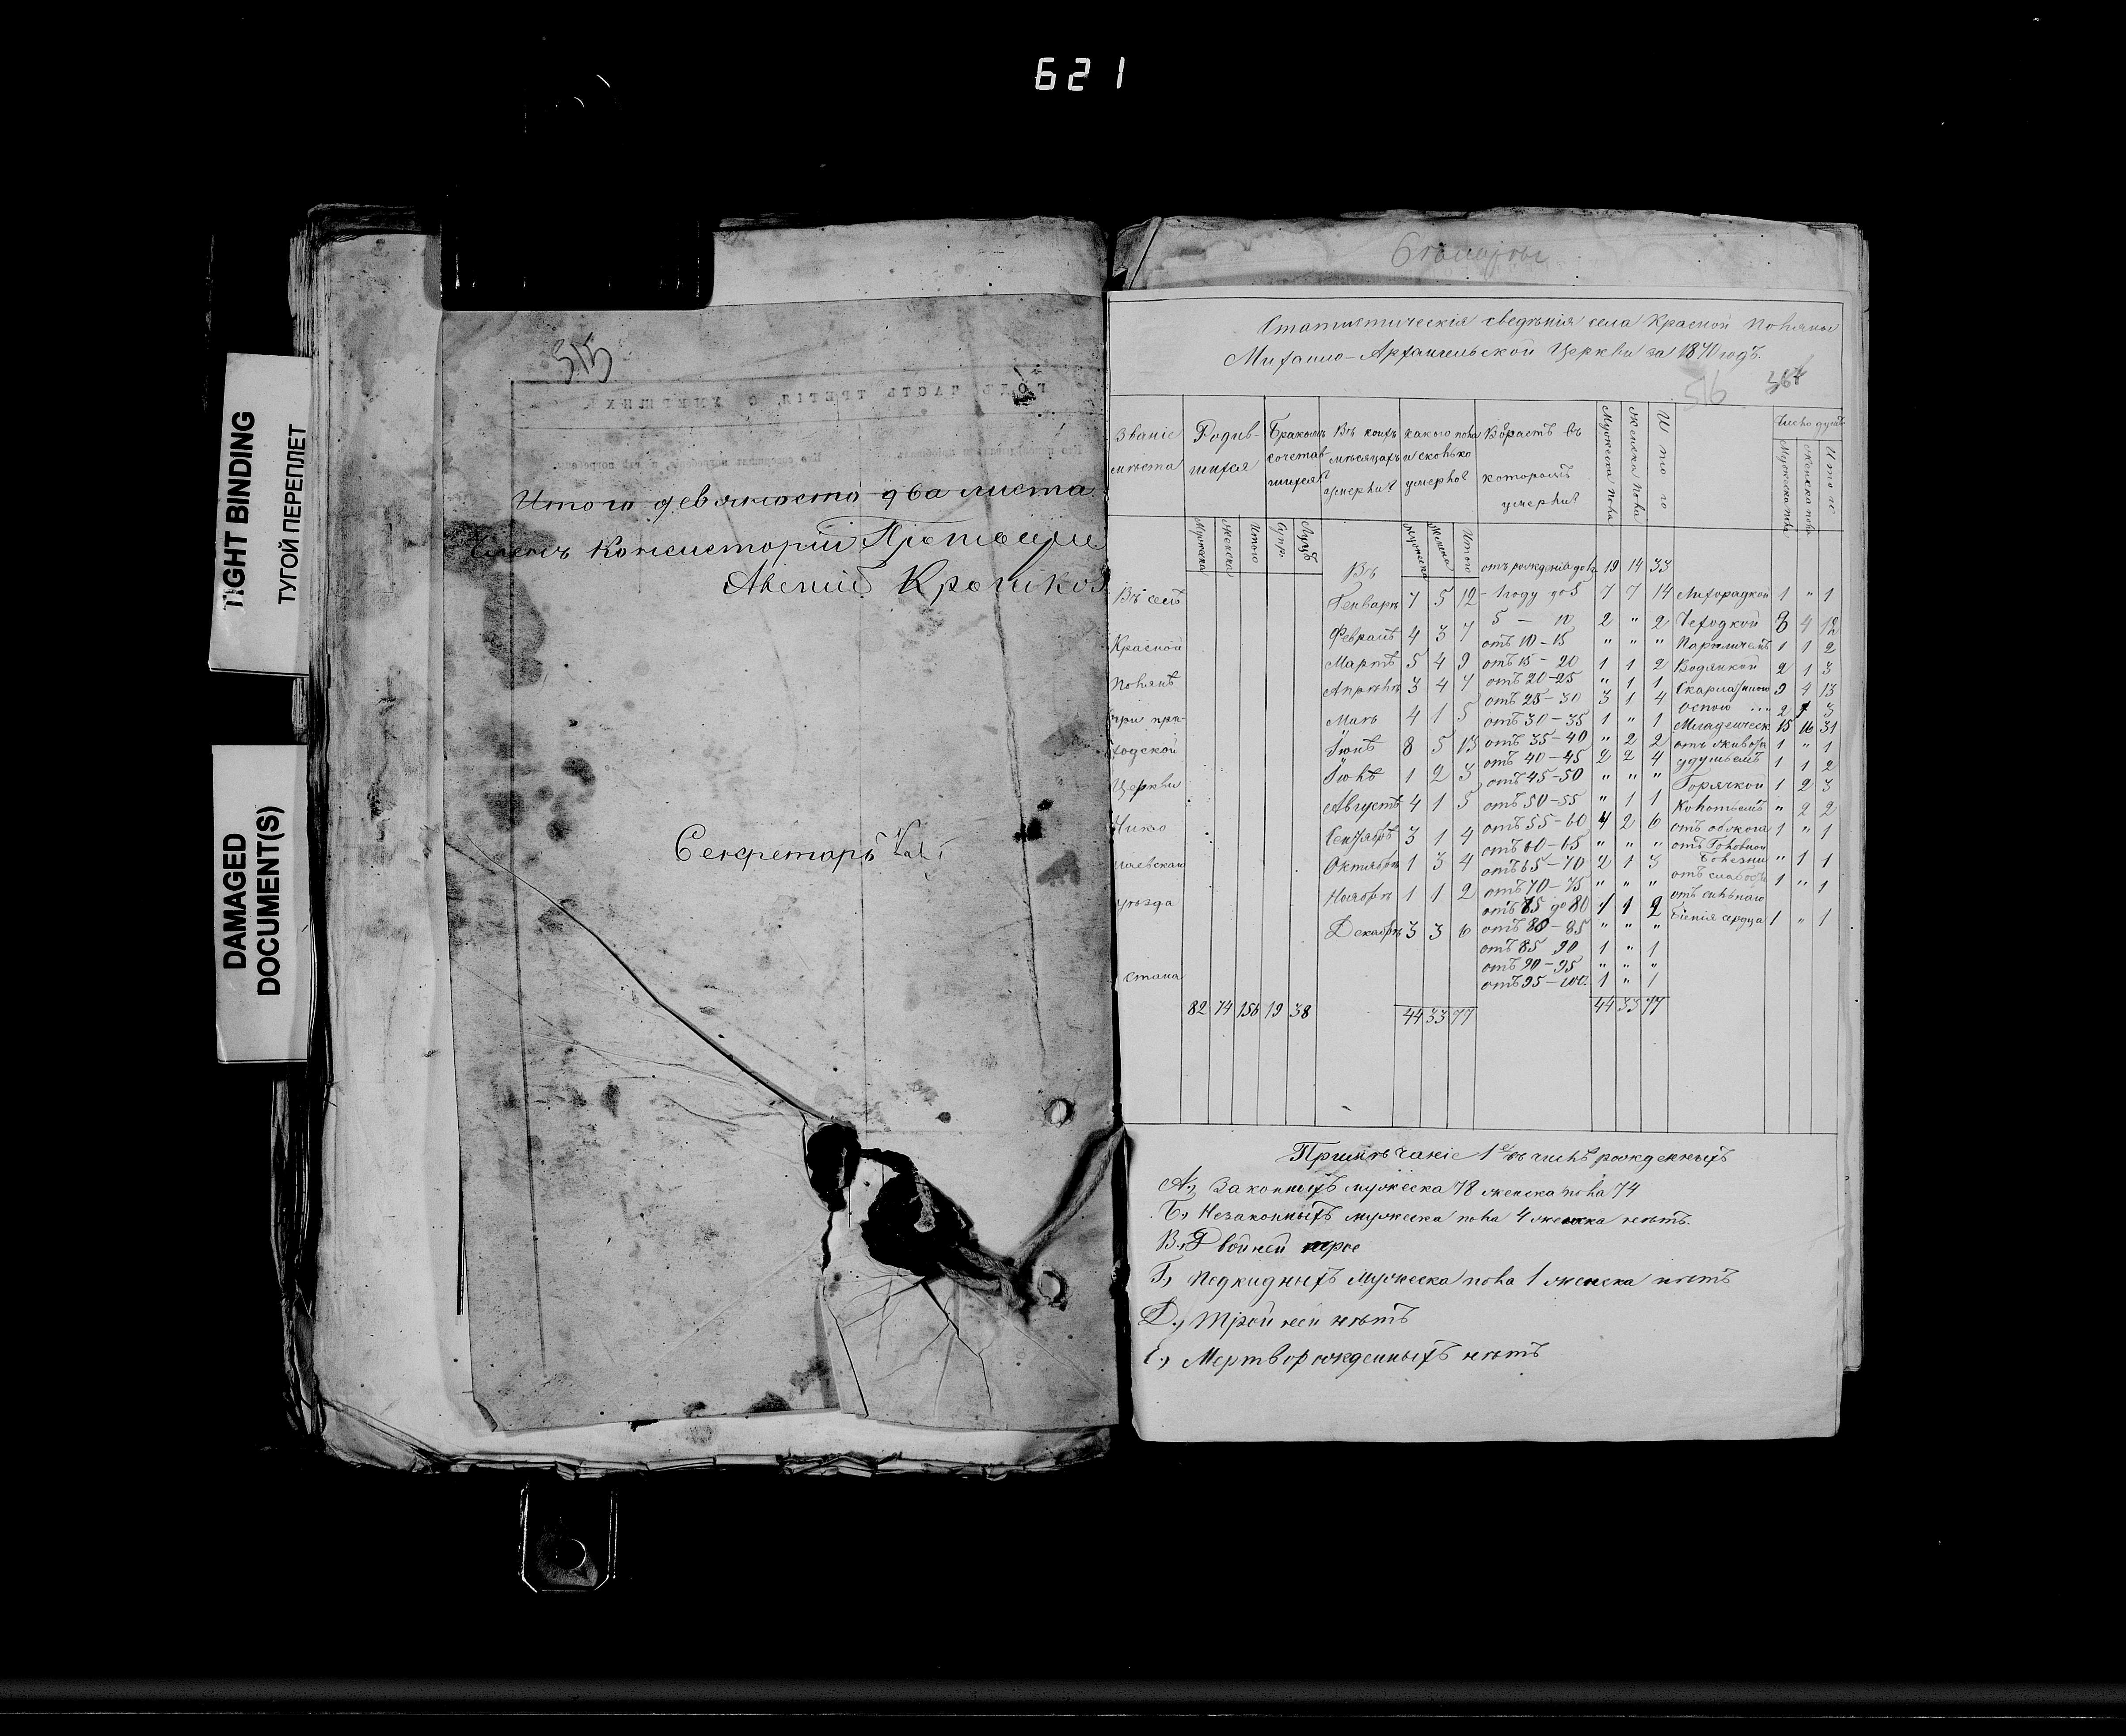 621
TIGHT BINDING
ТУГОЙ ПЕРЕПЛЕТ
DAMAGED
DOCUMENT(S)
515
ГОДЪ ЧАСТЬ ТРЕТІЯ, О УМЕРШИХЪ.
Итого девяносто два листа
Членъ Консисторіи
Секретарь
Статистическія сведѣнія села Красной Поляны
Михаило-Архангельской Церкви за 1870 годъ.
516 364
Званіе мѣста
Родившихся
Бракомъ сочетавшихся
Въ коихъ мѣсяцахъ умерли
какого пола и сколько умерло
Возрастъ въ которомъ умерли
Мужеска пола
Женска пола
Итого
Число душъ
Мужеска пола
Женска пола
Итого
Мужеска
Женска
Итого
Мужеска
Женска
Итого
Въ селѣ
Красной
Полянѣ
при при-
ходской
Церкви
Нико
лаевскаго
уѣзда
стана
82 74 156 19 38
Въ
Генварѣ 7 5 12
Февралѣ 4 3 7
Мартѣ 5 4 9
Апрѣлѣ 3 4 7
Маѣ 4 1 5
Іюнѣ 8 5 13
Іюлѣ 1 2 3
Августѣ 4 1 5
Сентябрѣ 3 1 4
Октябрѣ 1 3 4
Ноябрѣ 1 1 2
Декабрѣ 3 3 6
44 33 77
отъ рожденія до 1 19 14 33
- 1 году до 5 7 7 14
5 — 10 2 " 2
отъ 10 - 15 " " "
отъ 15 - 20 1 1 2
отъ 20 - 25 " 1 1
отъ 25 - 30 3 1 4
отъ 30 - 35 1 " 1
отъ 35 - 40 " 2 2
отъ 40 - 45 2 2 4
отъ 45 - 50 " " "
отъ 50 - 55 " 1 1
отъ 55 - 60 4 2 6
отъ 60 - 65 " " "
отъ 65 - 70 2 1 3
отъ 70 - 75 " " "
отъ 75 до 80 1 1 2
отъ 80 - 85 " " "
отъ 85 90 1 " 1
отъ 90 - 95 " " "
отъ 95 - 100. 1 " 1
44 33 77
Лихорадкой 1 " 1
Чеходкой 8 4 12
Параличемъ 1 1 2
Водянкой 2 1 3
Скарлатиною 9 4 13
Оспою ... 2 1 3
Младенческ 15 16 31
отъ живота 1 " 1
удушьемъ 1 1 2
Горячкой 1 2 3
Колотьемъ " 2 2
1 " 1
отъ Головной
болезни " 1 1
отъ слабости 1 " 1
отъ сильнаго
біенія сердца 1 " 1
Примѣчаніе 1е въ числѣ рожденныхъ
А., Законныхъ мужеска 78 женска пола 74
Б., Незаконныхъ мужеска пола 4 женска нѣтъ.
В., Двойней
Г., Подкидныхъ мужеска пола 1 женска нѣтъ
Д., Тройней нѣтъ
Е., Мертворожденныхъ нѣтъ